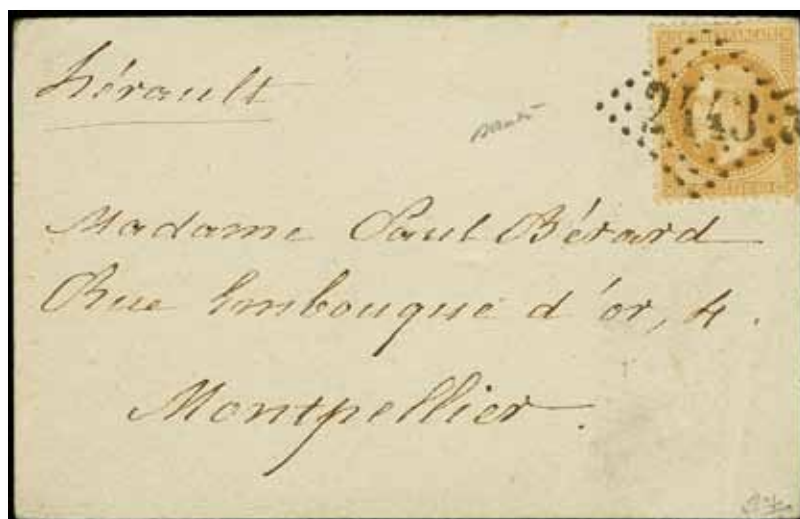 Hérault
2143
Madame Paul Bérard
Rue Embouque d'or, 4.
Montpellier.